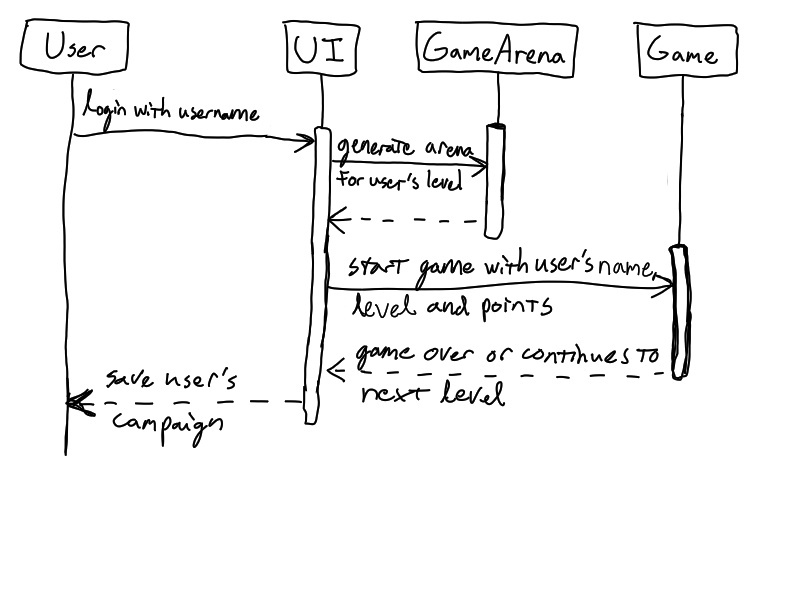 User
UI
GameArena
Game
login with username
generate arena
for user's level
start game with user's name,
level and points
game over or continues to
next level
save user's
campaign